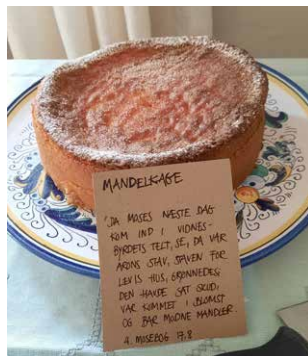 MANDELKAGE
"DA MOSES NÆSTE DAG
KOM IND I VIDNES-
BYRDETS TELT, SE, DA VAR
ARONS STAV, STAVEN FOR
LEVIS HUS, GRØNNEDES;
DEN HAVDE SAT SKUD,
VAR KOMMET I BLOMST
OG BAR MODNE MANDLER.
4. MOSEBOG 17,8